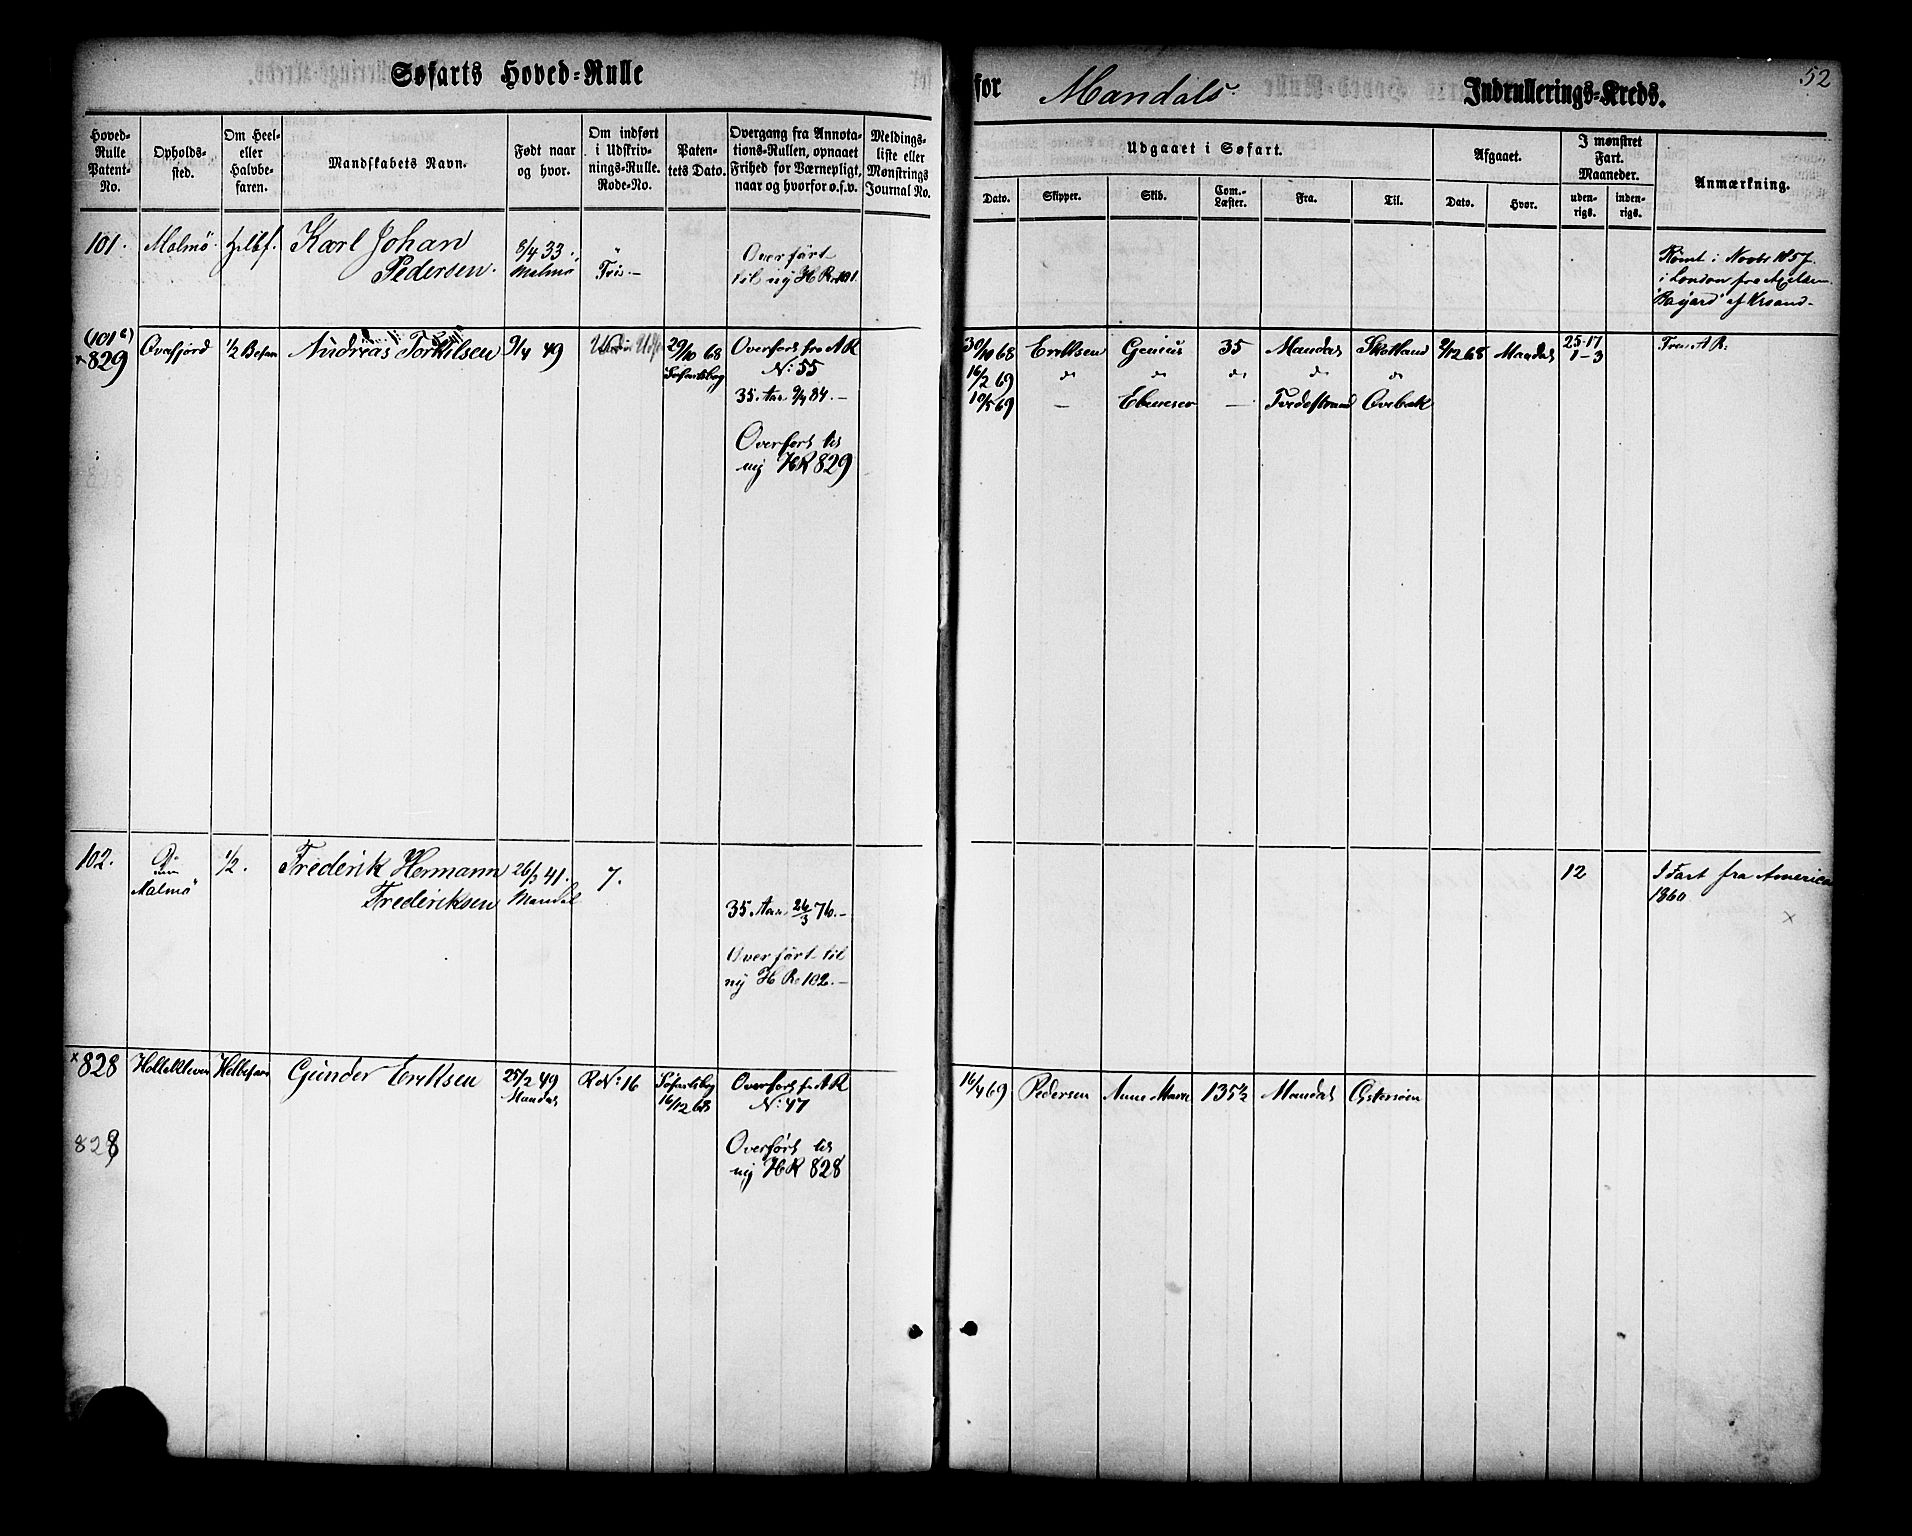 Søfarts Hoved-Rulle
for Mandals Indrullerings-Kreds.
52
Hoved-Rulle Patent-No.
Opholds-sted.
Om Heel- eller Halvbe-faren.
Mandskabets Navn.
Født naar og hvor.
Om indført i Udskriv-nings-Rulle. Rode-No.
Paten-tets Dato.
Overgang fra Annota-tions-Rullen, opnaaet Frihed for Værnepligt, naar og hvorfor o.s.v.
Meldings-liste eller Mønstrings Journal No.
Udgaaet i Søfart.
Dato. Skipper. Skib. Com.-Læster. Fra. Til.
Afgaaet.
Dato. Hvor.
I mønstret Fart. Maaneder.
uden-rigs. inden-rigs.
Anmærkning.
101. Malmö Hlbf. Karl Johan
Pedersen.
8/4 33.
Malmö
Overført
til ny H R 101.
Rømt i Novbr 1857
i London fra
"Bayard" af Krsand-
(101 c)
×829 Ovefjord 1/2 Befar Andreas Torkilsen 9/4 49
29/10 68
Søfartsbog
Overført fra A R
No: 55
35 Aar 9/4 84.-
Overført til
ny HR 829
30/10 68 Eriksen Genius 35 Mandal Skotland 2/12 68 Mandal
25-17
1-3
Fra A R:
16/2 69 do do do do do
10/5 69 — Ebeneser — Tvedestrand
102. Malmö 1/2. Frederik Hermann
Frederiksen
26/3 41.
Mandal
7.
35 Aar 26/3 76.-
Overført til
ny H R 102.-
12
I Fart fra America
1860
×
×828 Hollekleven Helbefaren Gunder Eriksen
25/2 49
Mandal
R No: 16
Søfartsbog
16/12 68
Overført fr A R
No: 47
Overført til
ny HR 828
828
16/4 69 Pedersen Anne Marie 135 1/2 Mandal Østersøen